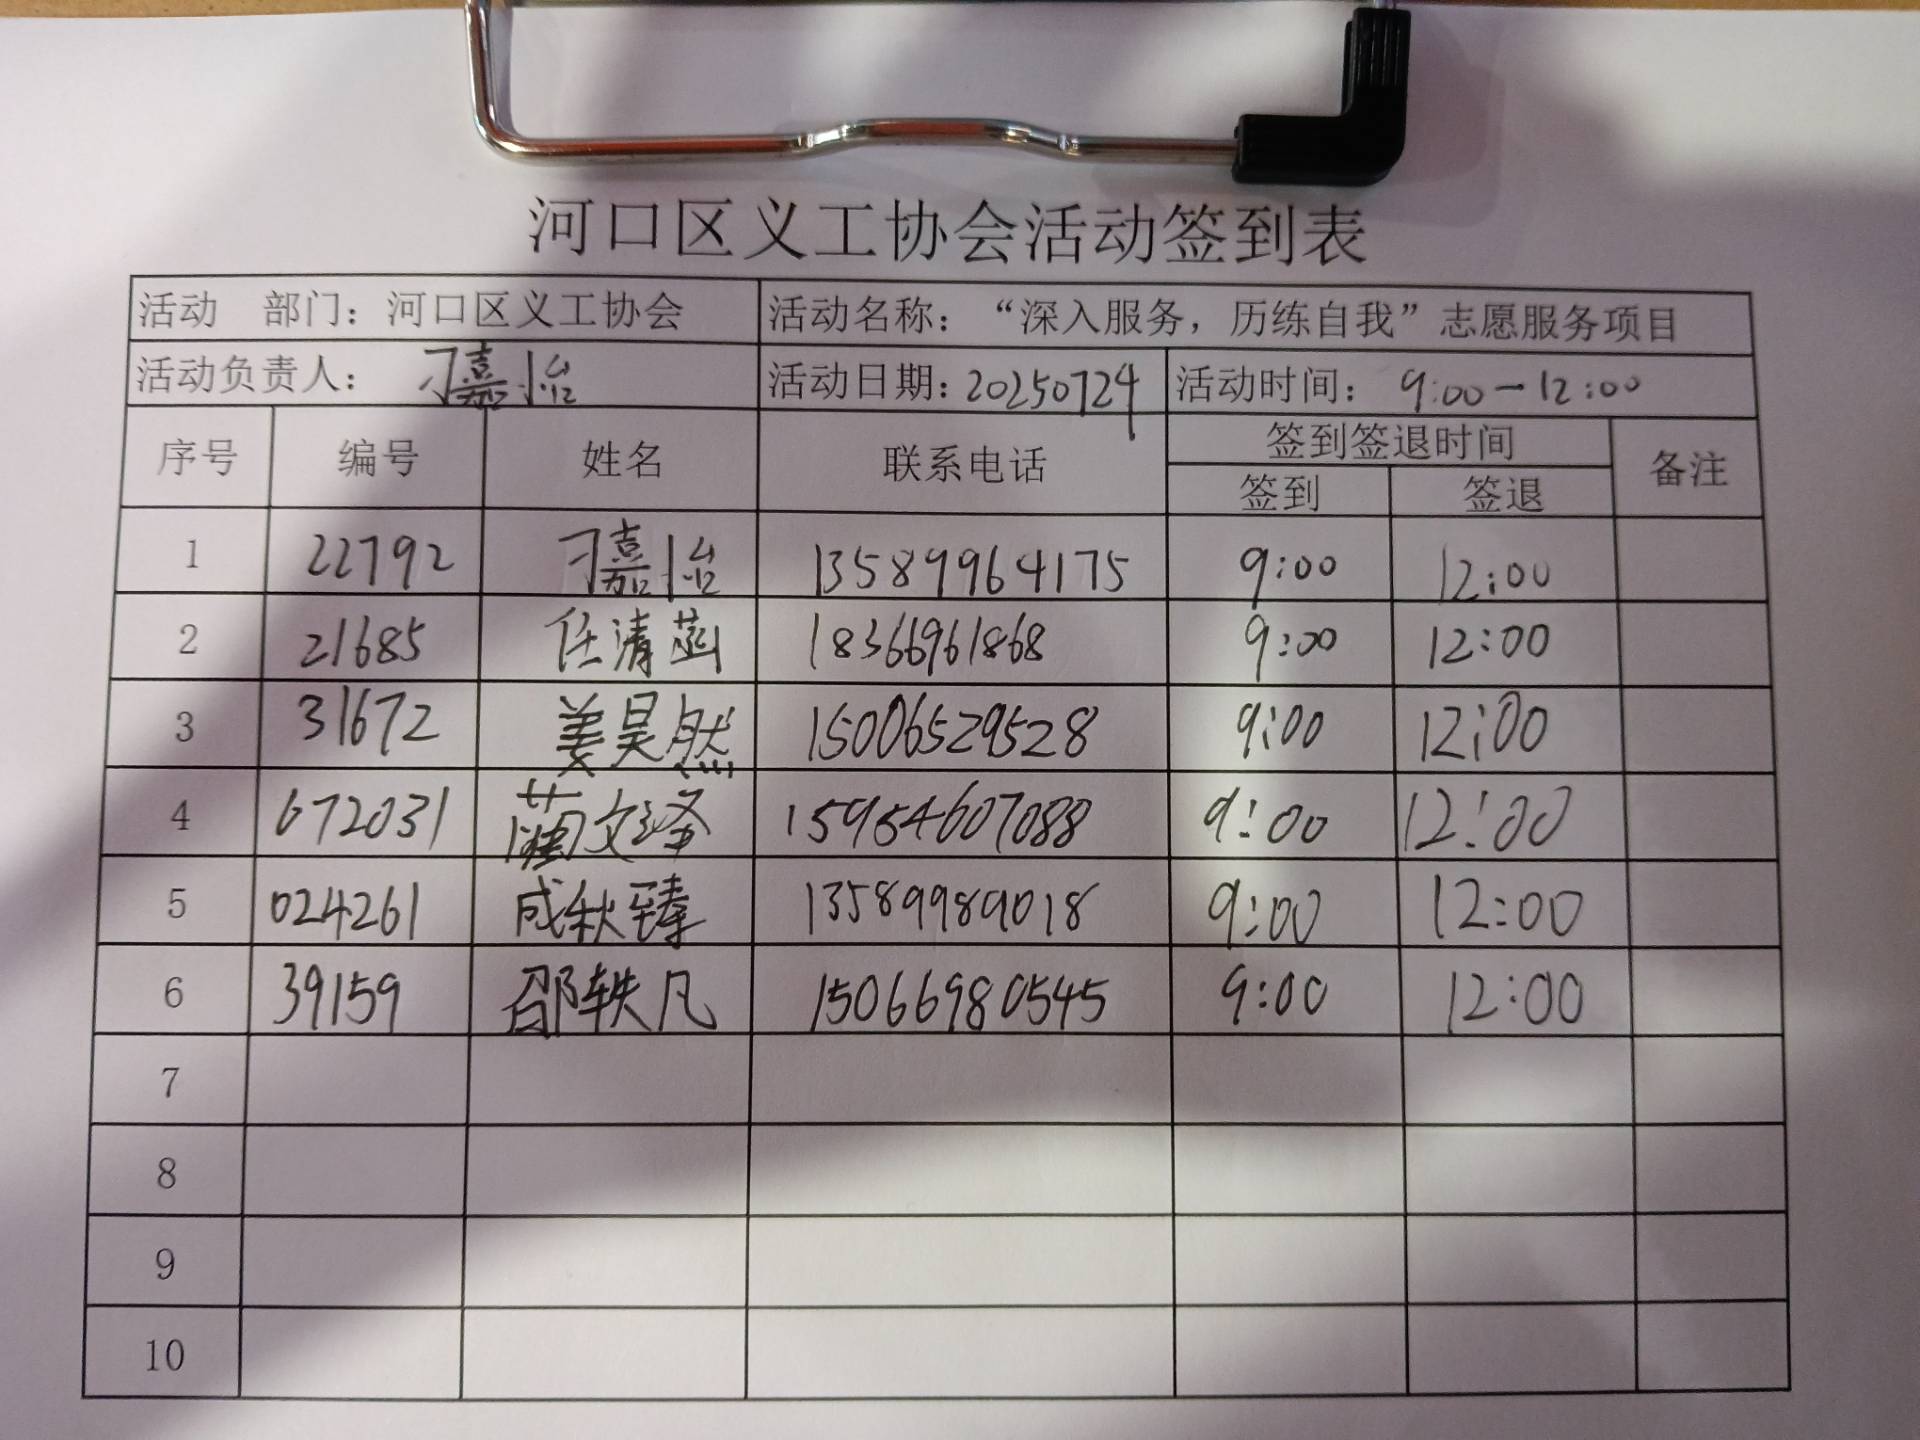 河口区义工协会活动签到表
活动 部门：河口区义工协会 活动名称：“深入服务，历练自我”志愿服务项目
活动负责人： 刁嘉怡 活动日期：20250724 活动时间： 9:00－12:00
序号 编号 姓名 联系电话 签到签退时间 备注
签到 签退
1 22792 刁嘉怡 13589964175 9:00 12:00
2 21685 任清菡 18366961868 9:00 12:00
3 31672 姜昊然 15006529528 9:00 12:00
4 672031 蔺文泽 15954607088 9:00 12:00
5 024261 成秋臻 13589989018 9:00 12:00
6 39159 邵轶凡 15066980545 9:00 12:00
7
8
9
10